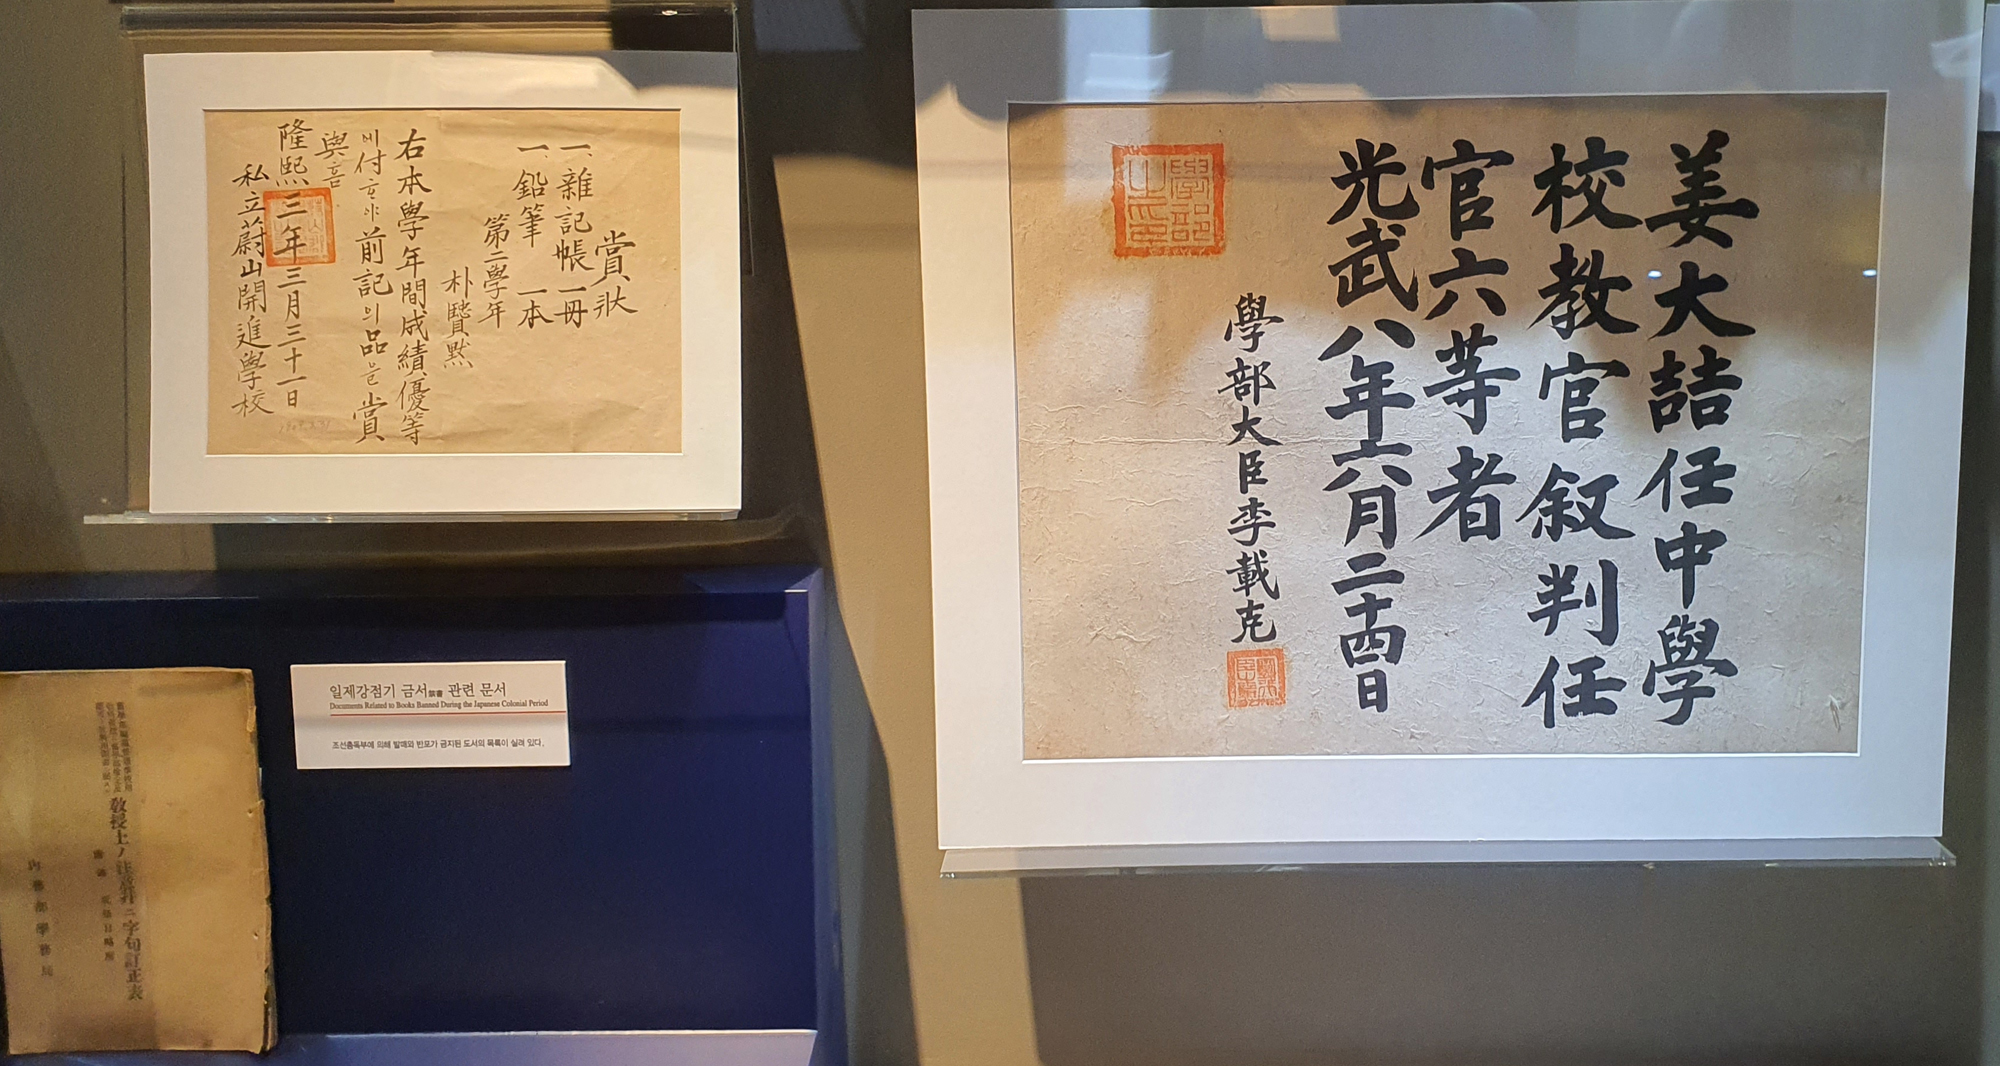 賞狀
一、雜記帳 一冊
一、鉛筆 一本
第二學年
朴贒黙
右本學年間成績優等
에付ᄒᆞ야前記의品을賞
與喜
隆熙三年三月三十一日
私立蔚山開進學校
姜大喆任中學
校教官叙判任
官六等者
光武八年六月二十四日
學部大臣李載克
學部之印
일제강점기 금서禁書 관련 문서
Documents Related to Books Banned During the Japanese Colonial Period
조선총독부에 의해 발매와 반포가 금지된 도서의 목록이 실려 있다.
教授上ノ注意幷ニ字句訂正表
內務部學務局